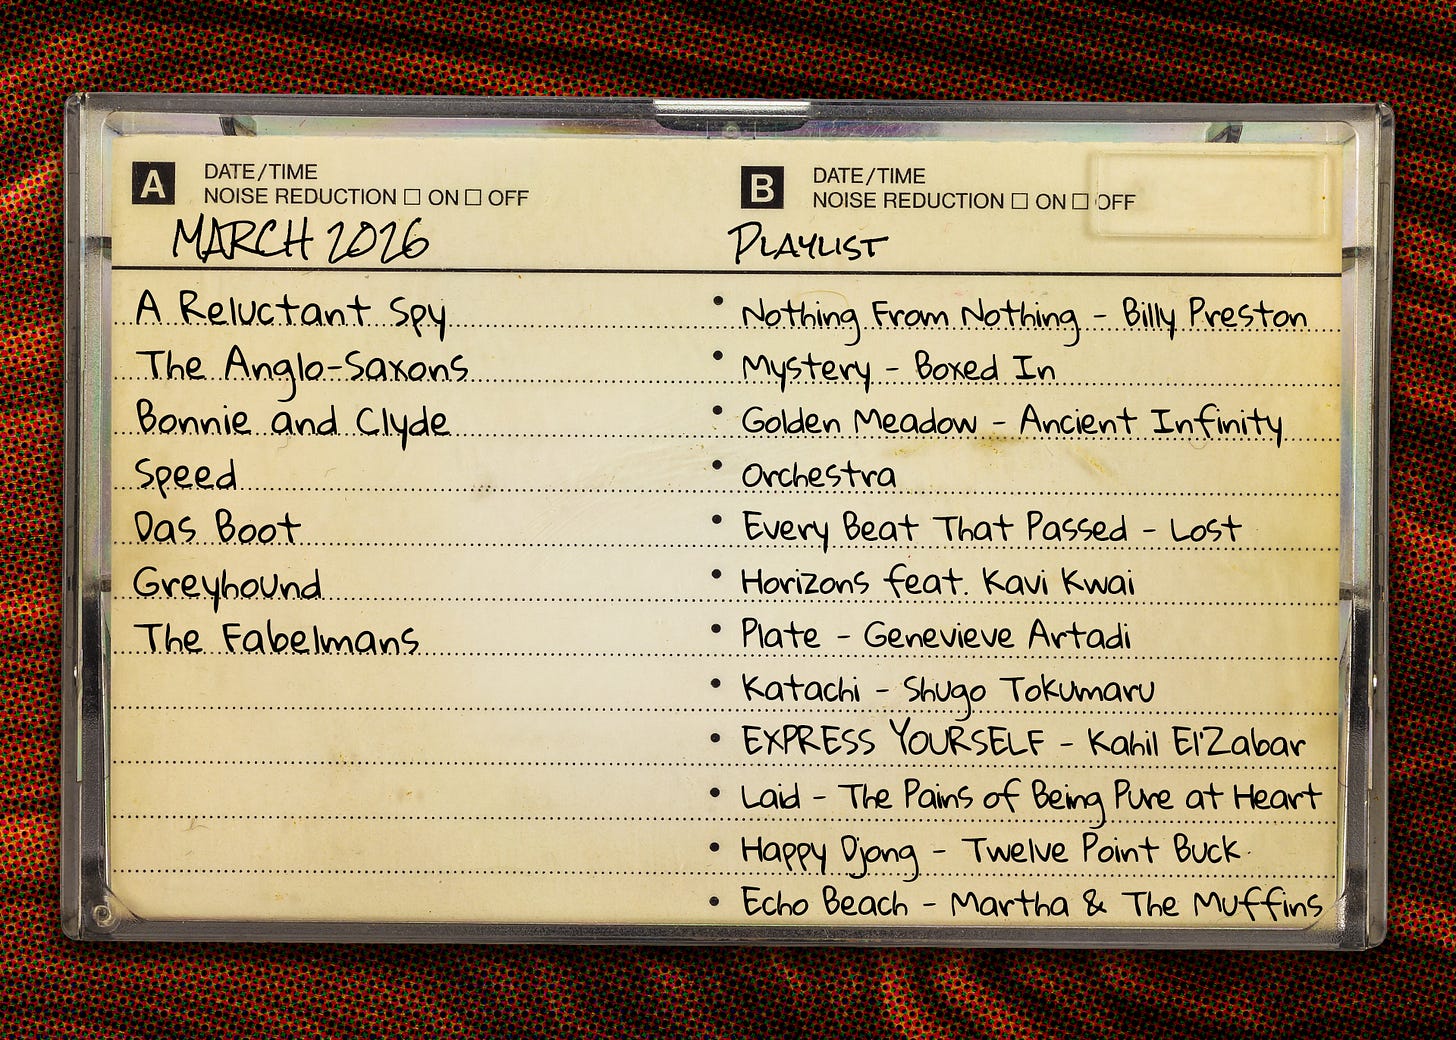 A DATE/TIME
NOISE REDUCTION ☐ ON ☐ OFF
MARCH 2026
A Reluctant Spy
The Anglo-Saxons
Bonnie and Clyde
Speed
Das Boot
Greyhound
The Fabelmans
B DATE/TIME
NOISE REDUCTION ☐ ON ☐ OFF
PLAYLIST
• Nothing From Nothing - Billy Preston
• Mystery - Boxed In
• Golden Meadow - Ancient Infinity
• Orchestra
• Every Beat That Passed - Lost
• Horizons feat. Kavi Kwai
• Plate - Genevieve Artadi
• Katachi - Shugo Tokumaru
• EXPRESS YOURSELF - Kahil El'Zabar
• Laid - The Pains of Being Pure at Heart
• Happy Djong - Twelve Point Buck
• Echo Beach - Martha & The Muffins